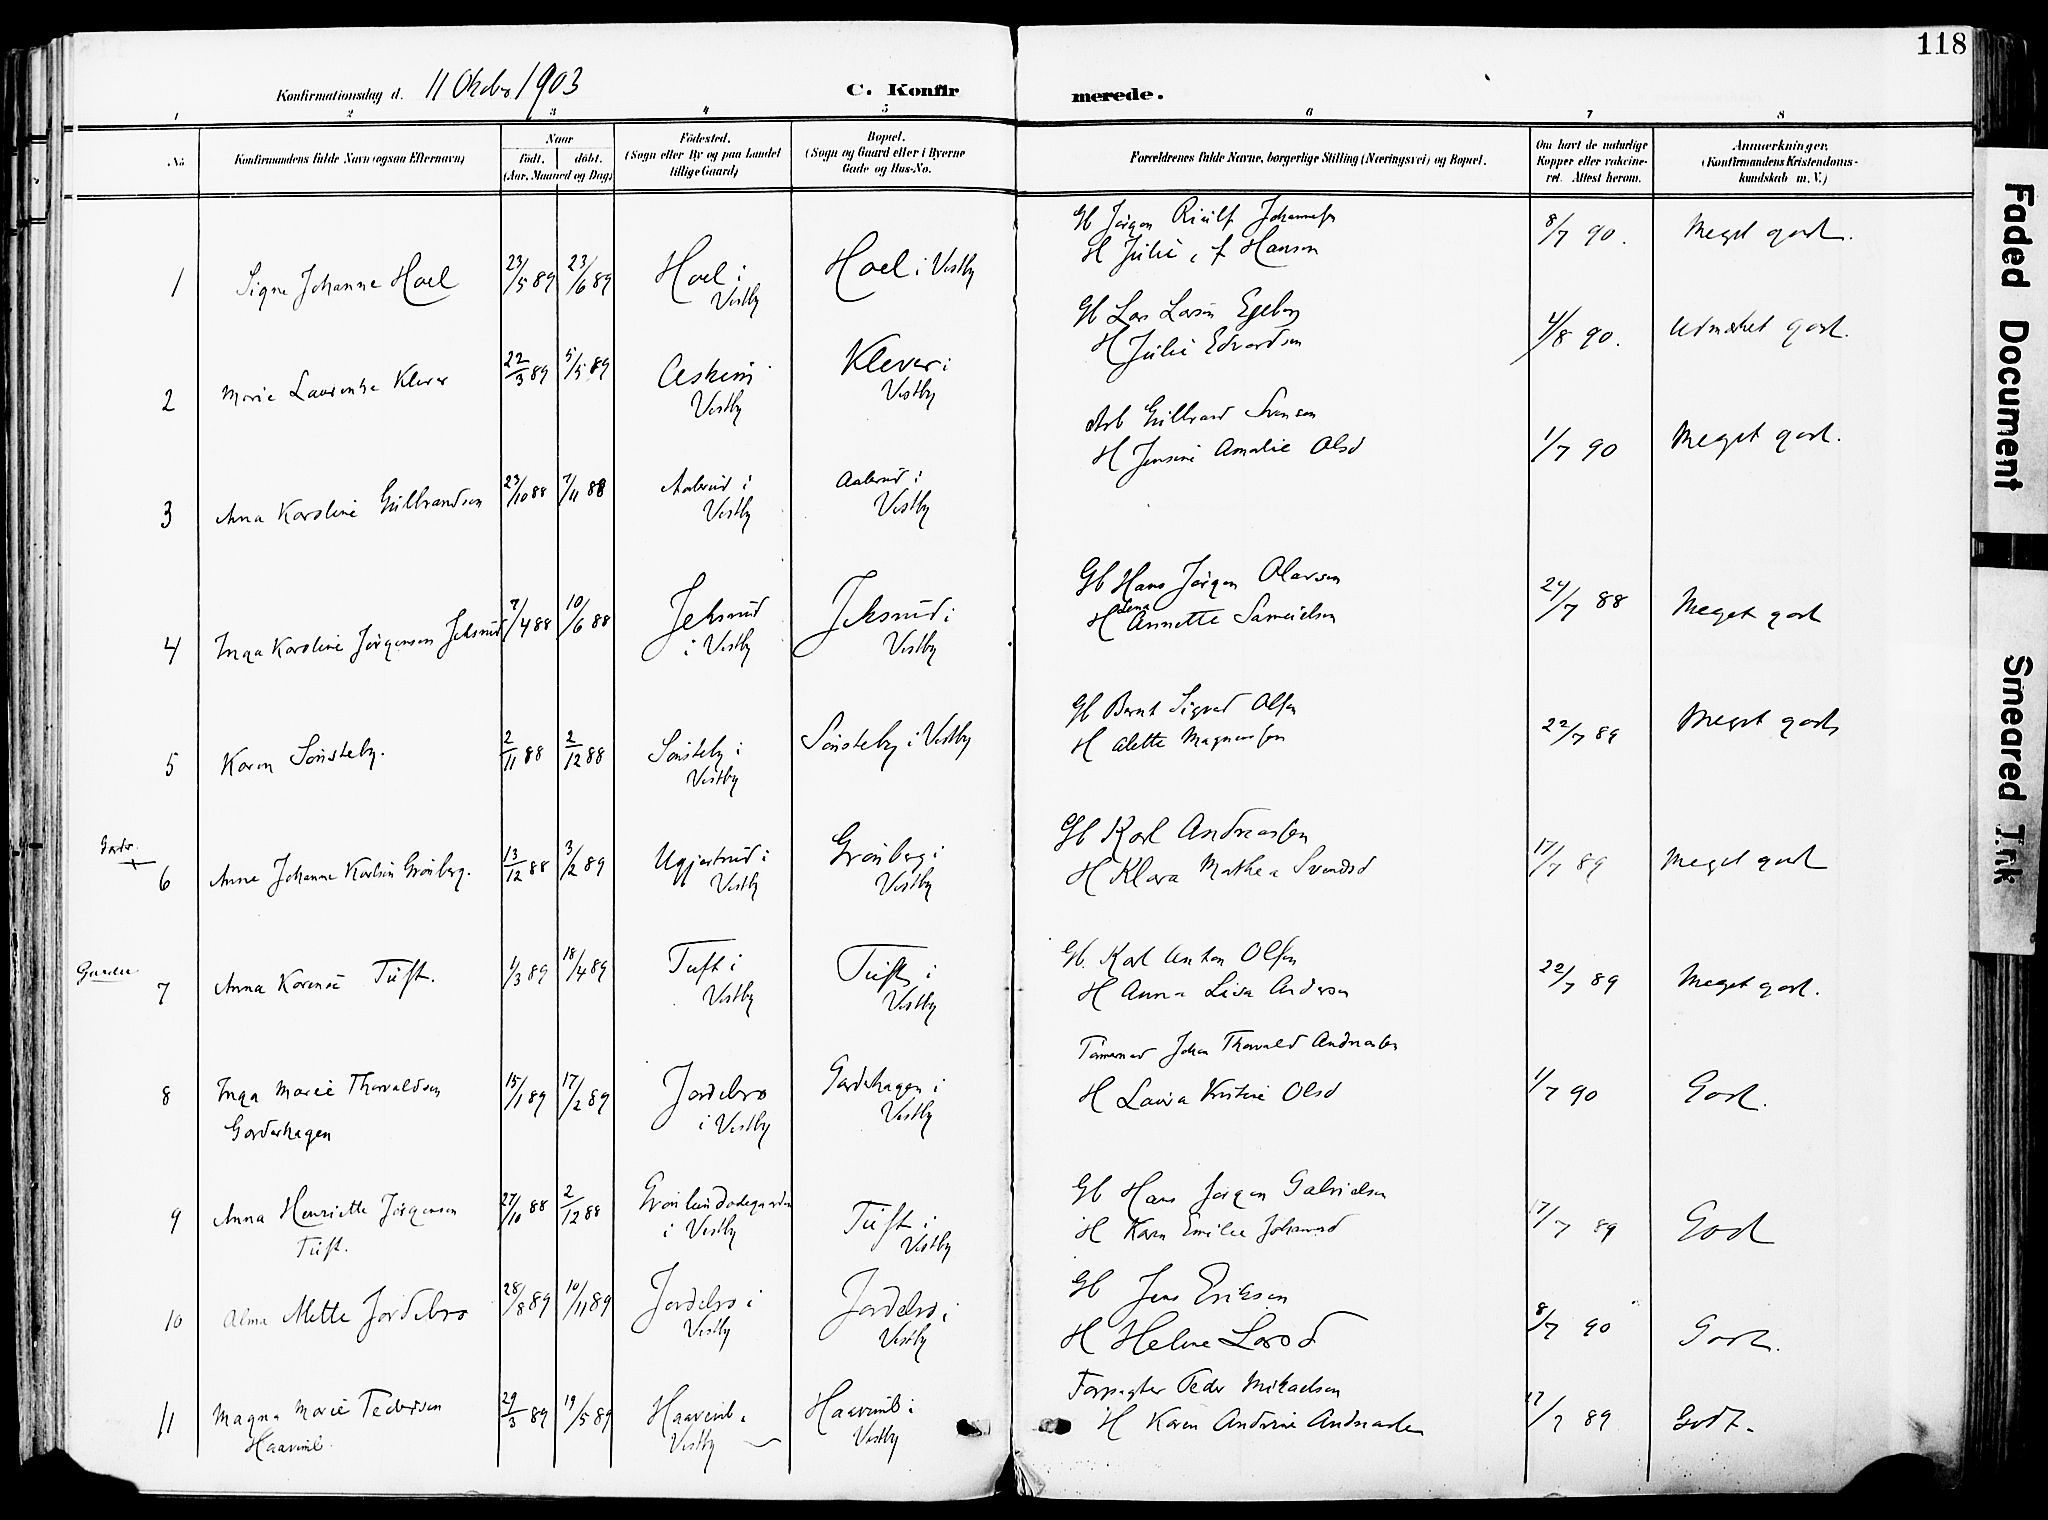 118
Konfirmationsdag d. 11 Oktober 1903
C. Konfirmerede.
1 2 3 4 5 6 7 8
No
Konfirmandens fulde Navn (ogsaa Efternavn)
Naar
født. døbt.
(Aar, Maaned og Dag)
Fødested.
(Sogn eller By og paa Landet
tillige Gaard)
Bopæl.
(Sogn og Gaard eller i Byerne
Gade og Hus-No.
Forældrenes fulde Navne, borgerlige Stilling (Næringsvei) og Bopæl.
Om havt de naturlige
Kopper eller vakcine-
ret. Attest herom.
Anmerkninger.
(Konfirmandens Kristendoms-
kundskab m. V.)
1 Signe Johanne Hoel 23/5 89 23/6 89 Hoel i Vestby Hoel i Vestby
Gb Jørgen Johannesen
H Julie f Hansen
8/7 90. Meget godt.
2 Marie Laurentse Klever 22/3 89 5/5 89 Vestby Klever i Vestby
Gb Lars Larsen Egeberg
H Julie Edvardsen
4/8 90. Udmærket godt.
3 Anna Karoline Gulbrandsen 23/10 88 7/11 88 Aalerud i Vestby Aalerud i Vestby
Arb Gulbrand Svensen
H Jensine Amalie Olsd
1/7 90 Meget godt.
4 Inga Karoline Jørgensen Jeksrud 7/4 88 10/6 88 Jeksrud i Vestby Jeksrud i Vestby
Gb Hans Jørgen Olavsen
H Lena Annette Samuelsen
24/7 88 Meget godt
5 Karen Sønsteby. 2/11 88 2/12 88 Sønsteby i Vestby Sønsteby i Vestby
Gb Bernt Sigvard Olsen
H Alette Magnussen
22/7 89 Meget godt
6 Anne Johanne Karlsen Grønberg. 13/12 88 3/2 89 Ugjestrud i Vestby Grønberg i Vestby
Gb Karl Andreassen
H Klara Mathea Svendsd
17/7 89 Meget godt
Garder
7 Anna Korense Tuft. 1/3 89 18/4 89 Tuft i Vestby Tuft i Vestby
Gb. Karl Anton Olsen
H Anna Lisa Andersen
22/7 89 Meget godt.
8 Inga Marie Thorvaldsen
Garderhagen
15/1 89 17/2 89 Jordebro i Vestby Garderhagen i Vestby
Tømmermd Johan Thorvald Andreassen
H Laura Kristine Olsd
1/7 90 Godt.
9 Anna Henriette Jørgensen
Tuft.
27/10 88 2/12 88 Grønlundødegaarden i Vestby Tuft i Vestby
Gb Hans Jørgen Gabrielsen
H Karen Emilie Johansd
17/7 89 Godt
10 Alma Mette Jordebro 28/8 89 10/11 89 Jordebro i Vestby Jordebro i Vestby
Gb Jens Eriksen
H Helene Larsd
8/7 90 Godt.
11 Magna Marie Pedersen
Haavimb.
29/3 89 19/5 89 Haavimb. Vestby Haavimb i Vestby
Forpagter Peder Mikaelsen
H Karen Andrine Andreassen
17/7 89 Godt.
Faded Document
Smeared Ink